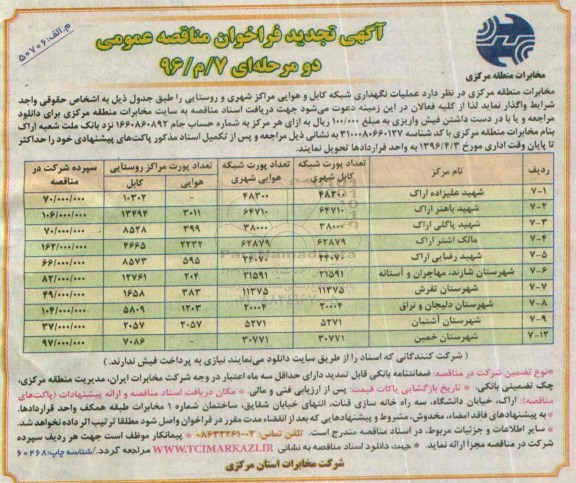 م.الف:۵۰۷۰۶
آگهی تجدید فراخوان مناقصه عمومی
دو مرحله‌ای ۷/م/۹۶
مخابرات منطقه مرکزی
مخابرات منطقه مرکزی در نظر دارد عملیات نگهداری شبکه کابل و هوایی مراکز شهری و روستایی را طبق جدول ذیل به اشخاص حقوقی واجد
شرایط واگذار نماید لذا از کلیه فعالان در این زمینه دعوت می‌شود جهت دریافت اسناد مناقصه به سایت مخابرات منطقه مرکزی برای دانلود
مراجعه و یا با در دست داشتن فیش واریزی به مبلغ ۱۰۰/۰۰۰ ریال به ازای هر مرکز به شماره حساب جام ۱۶۶۰۸۶۰۸۹۲ نزد بانک ملت شعبه اراک
بنام مخابرات منطقه مرکزی با کد شناسه ۳۱۰۰۰۸۰۶۶۰۱۲۷ به نشانی ذیل مراجعه و پس از تکمیل اسناد مذکور پاکت‌های پیشنهادی خود را حداکثر
تا پایان وقت اداری مورخ ۱۳۹۶/۴/۳ به واحد قراردادها تحویل نمایند.
ردیف نام مرکز تعداد پورت شبکه کابل شهری تعداد پورت شبکه هوایی شهری تعداد پورت مراکز روستایی هوایی کابل سپرده شرکت در مناقصه
۷-۱ شهید علیزاده اراک ۴۸۳۰۰ ۴۸۳۰۰ - ۱۰۳۰۲ ۷۰/۰۰۰/۰۰۰
۷-۲ شهید باهنر اراک ۶۴۷۱۰ ۶۴۷۱۰ ۳۰۱۱ ۱۳۴۹۴ ۱۰۶/۰۰۰/۰۰۰
۷-۳ شهید پاکلی اراک ۳۸۰۰۰ ۳۸۰۰۰ ۳۹۹ ۸۵۲۸ ۷۰/۰۰۰/۰۰۰
۷-۴ مالک اشتر اراک ۶۲۸۷۹ ۶۲۸۷۹ ۲۲۳۲ ۴۶۶۵ ۱۶۲/۰۰۰/۰۰۰
۷-۵ شهید رضایی اراک ۲۴۰۷۰ ۲۴۰۷۰ ۵۹۵ ۸۵۷۳ ۶۶/۰۰۰/۰۰۰
۷-۶ شهرستان شازند، مهاجران و آستانه ۲۱۵۹۱ ۲۱۵۹۱ ۲۰۴ ۱۲۷۶۱ ۸۲/۰۰۰/۰۰۰
۷-۷ شهرستان تفرش ۱۱۳۷۵ ۱۱۳۷۵ ۳۸۳ ۱۶۵۸ ۴۹/۰۰۰/۰۰۰
۷-۸ شهرستان دلیجان و نراق ۲۰۰۰۴ ۲۰۰۰۴ ۱۲۰۳ ۵۸۰۹ ۱۰۴/۰۰۰/۰۰۰
۷-۹ شهرستان آشتیان ۵۲۷۱ ۵۲۷۱ ۲۰۵۷ ۲۰۵۷ ۳۷/۰۰۰/۰۰۰
۷-۱۲ شهرستان خمین ۳۰۷۷۱ ۳۰۷۷۱ - ۷۰۸۶ ۹۷/۰۰۰/۰۰۰
( شرکت کنندگانی که اسناد را از طریق سایت دانلود می‌نمایند نیازی به پرداخت فیش ندارند. )
*نوع تضمین شرکت در مناقصه: ضمانتنامه بانکی قابل تمدید دارای حداقل سه ماه اعتبار در وجه شرکت مخابرات ایران، مدیریت منطقه مرکزی،
چک تضمینی بانکی. * تاریخ بازگشایی پاکات قیمت: پس از ارزیابی فنی و مالی * مکان دریافت اسناد مناقصه و ارائه پیشنهادات (پاکت‌های
مناقصه): اراک، خیابان دانشگاه، سه راه خانه سازی قنات، انتهای خیابان شقایق، ساختمان شماره ۱ مخابرات طبقه همکف واحد قراردادها.
* به پیشنهادهای فاقد امضاء، مخدوش، مشروط و پیشنهادهایی که بعد از انقضاء مدت مقرر در فراخوان واصل شود مطلقا ترتیب اثر داده نخواهد شد.
* سایر اطلاعات و جزئیات مربوط، در اسناد مناقصه مندرج است. تلفن تماس: ۰۸۶۳۲۲۶۱۰۰۳ * پیمانکار موظف است جهت هر ردیف سپرده
شرکت در مناقصه مجزا ارائه نماید. * جهت دانلود اسناد مناقصه به نشانی WWW.TCIMARKAZI.IR مراجعه گردد./شناسه چاپ: ۶۰۲۶۸
شرکت مخابرات استان مرکزی